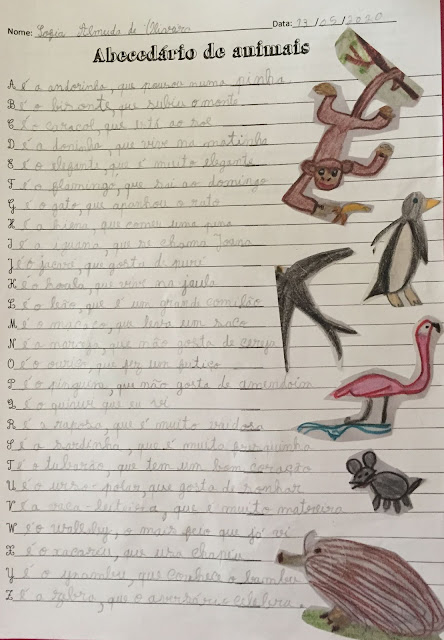 Nome: Sofia Almeida de Data: 13/05/2020
Abecedário de animais
A é a andorinha, que pousou numa pinha
B é o bisonte, que subiu o monte
C é o caracol, que está ao sol
D é a doninha, que vive na matinha
E é o elefante, que é muito elegante
F é a flamingo, que sai ao domingo
G é o gato, que apanhou o rato
H é a hiena, que comeu uma pena
I é a iguana, que se chama Joana
J é o jacaré, que gosta de puré
K é o koala, que vive na jaula
L é o leão, que é um grande comilão
M é o macaco, que leva um saco
N é a narceja, que não gosta de cereja
O é o ouriço, que fez um
P é o pinguim, que não gosta de amendoim
Q é o que eu vi
R é a raposa, que é muito vaidosa
S é a sardinha, que é muito
T é o tubarão, que tem um bom coração
U é o urso-polar, que gosta de sonhar
V é a vaca-leiteira, que é muito matreira
W é o wallaby, o mais feio que já vi
X é o xacareu, que usa chapéu
Y é o ynambu, que conhece o bambu
Z é a zebra, que o aniversário celebra.